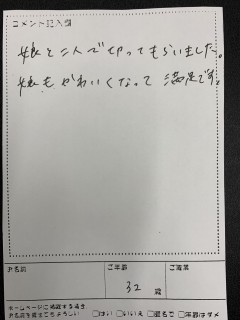 コメント記入欄
娘と二人で切ってもらいました。
娘もかわいくなって満足です。
お名前 ご年齢 ご職業
32 歳
ホームページに掲載する時
お名前を載せてもよろしい □はい □いいえ □匿名で □年齢はダメ